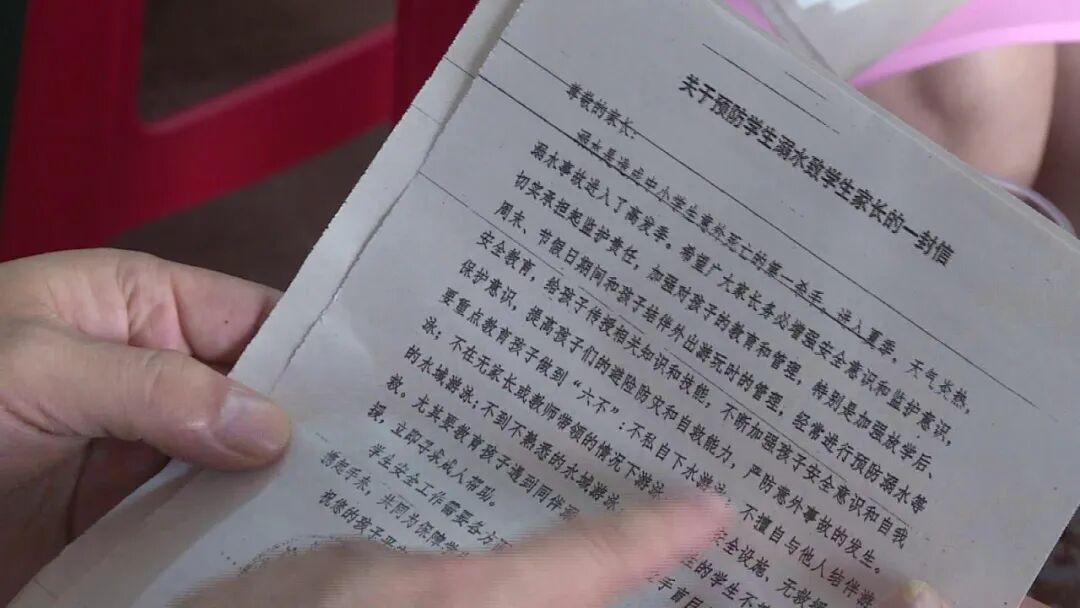 关于预防学生溺水致学生家长的一封信
尊敬的家长：
溺水是造成中小学生意外死亡的第一杀手。进入夏季，天气炎热，
溺水事故进入了高发季。希望广大家长务必增强安全意识和监护意识，
切实承担起监护责任，加强对孩子的教育和管理，特别是加强放学后、
周末、节假日期间和孩子结伴外出游玩时的管理，经常进行预防溺水等
安全教育，给孩子传授相关知识和技能，不断加强孩子安全意识和自我
保护意识，提高孩子们的避险防灾和自救能力，严防意外事故的发生。
要重点教育孩子做到“六不”：不私自下水游泳；不擅自与他人结伴游
泳；不在无家长或教师带领的情况下游泳 安全设施、无救援
的水域游泳；不到不熟悉的水域游泳 的学生不
救。尤其要教育孩子遇到同伴溺 手盲目
援，立即寻求成人帮助。
学生安全工作需要各方面
携起手来，共同为保障学
祝您的孩子平